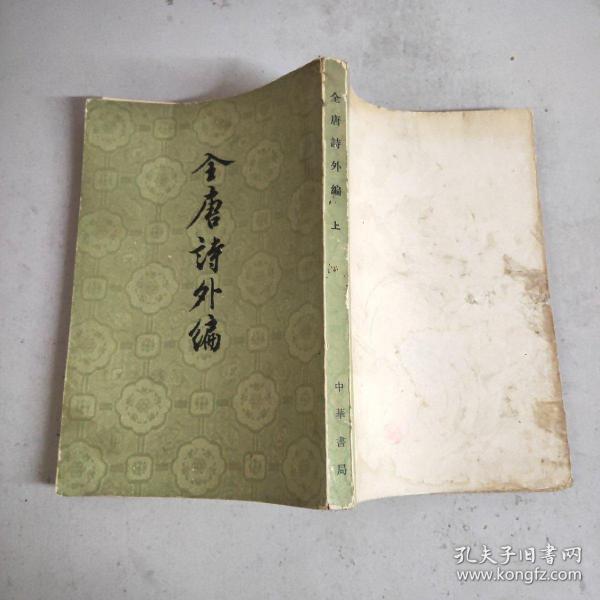 全唐詩外編
全唐詩外編 上
中華書局
孔夫子旧书网
www.kongfz.com